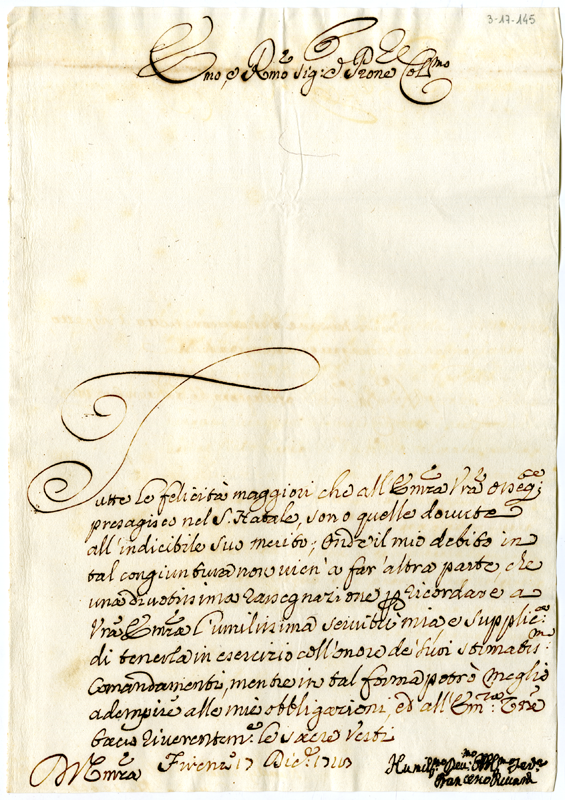 3-17-145
Emo, e Rmo Sig:r e Prone Coll:mo
Tutte le felicità maggiori che all'Emza Vra osseq:
presagisco nel S. Natale, sono quelle dovute
all'indicibile suo merito; Onde il mio debito in
tal congiuntura non vien' a far altra parte, che
una divotissima rassegnazione p Ricordare a
Vra Emza l'umilissima servitù mia e supplic:
di tenerla in esercizio coll'onore de' suoi stimatis:mi
Comandamenti, mentre in tal forma potrò meglio
adempire alle mie obbligazioni, ed all'Em:za
bacio riverentem:e le sacre Vesti
Emza Firenze 17 Dic:re
Humiliss:mo Dev:mo Obl:mo
Francesco Riccardi